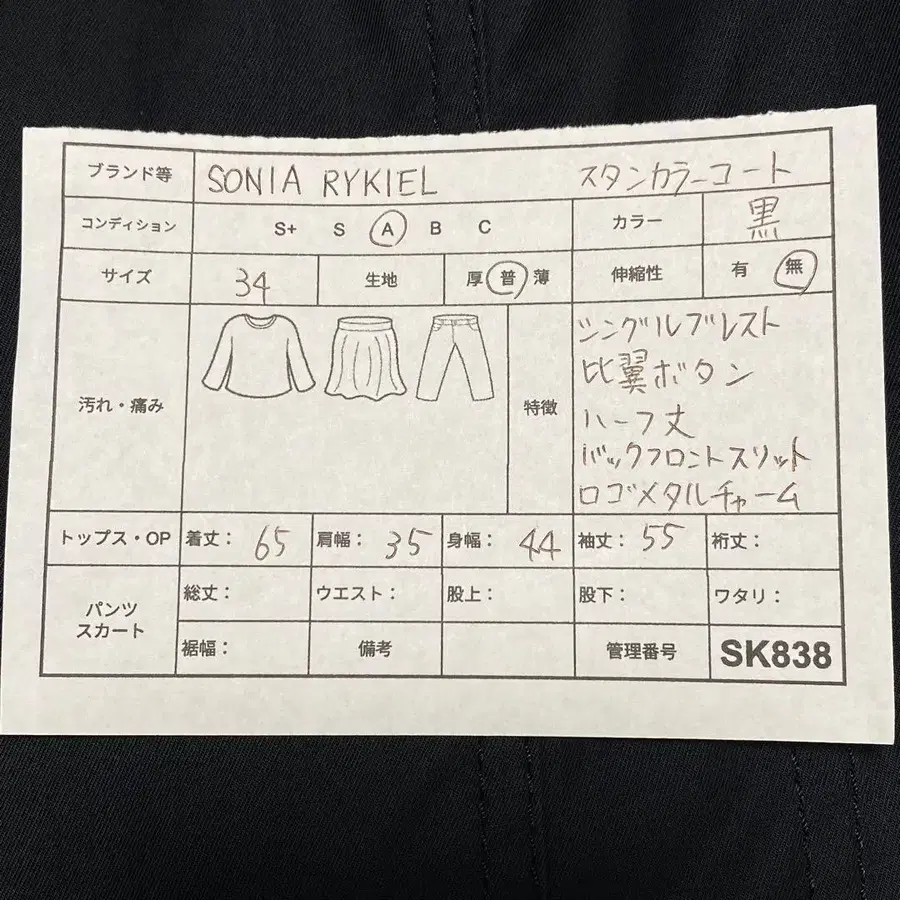 ブランド等 SONIA RYKIEL スタンカラーコート
コンディション S+ S A B C カラー 黒
サイズ 34 生地 厚 普 薄 伸縮性 有 無
汚れ・痛み 特徴
シングルブレスト
比翼ボタン
ハーフ丈
バックフロントスリット
ロゴメタルチャーム
トップス・OP 着丈： 65 肩幅： 35 身幅： 44 袖丈： 55 裄丈：
パンツ
スカート
総丈： ウエスト： 股上： 股下： ワタリ：
裾幅： 備考 管理番号 SK838